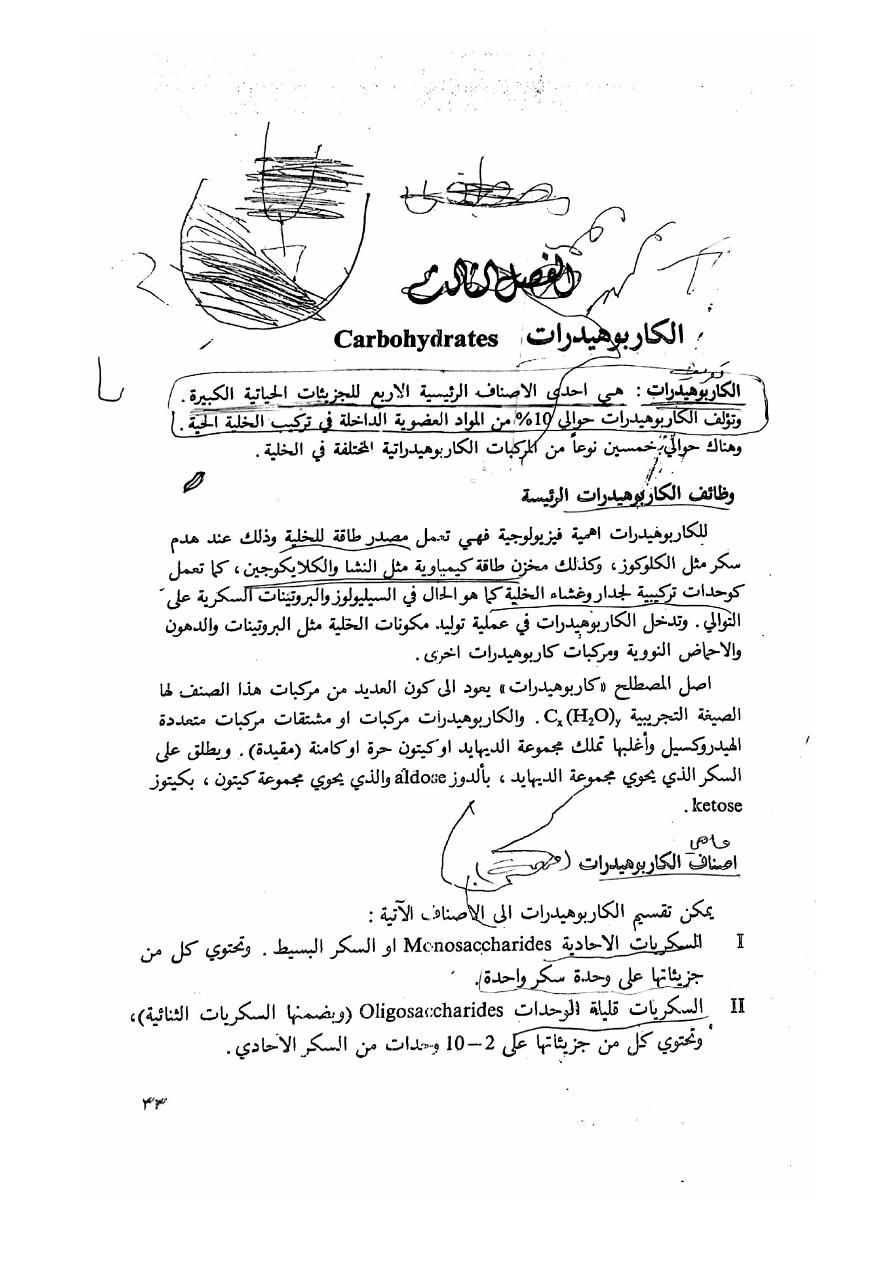 الفصل الثالث
الكاربوهيدرات Carbohydrates
تعريف
الكاربوهيدرات : هي احدى الاصناف الرئيسية الاربع للجزيئات الحياتية الكبيرة .
وتؤلف الكاربوهيدرات حوالي 10% من المواد العضوية الداخلة في تركيب الخلية الحية .
وهناك حوالي خمسين نوعاً من المركبات الكاربوهيدراتية المختلفة في الخلية .
وظائف الكاربوهيدرات الرئيسة
للكاربوهيدرات اهمية فيزيولوجية فهي تعمل مصدر طاقة للخلية وذلك عند هدم
سكر مثل الكلوكوز ، وكذلك مخزن طاقة كيمياوية مثل النشا والكلايكوجين ، كما تعمل
كوحدات تركيبية لجدار وغشاء الخلية كما هو الحال في السيليولوز والبروتينات السكرية على
التوالي . وتدخل الكاربوهيدرات في عملية توليد مكونات الخلية مثل البروتينات والدهون
والاحماض النووية ومركبات كاربوهيدرات اخرى .
اصل المصطلح «كاربوهيدرات» يعود الى كون العديد من مركبات هذا الصنف لها
الصيغة التجريبية Cx(H2O)y . والكاربوهيدرات مركبات او مشتقات مركبات متعددة
الهيدروكسيل وأغلبها تملك مجموعة الديهايد او كيتون حرة او كامنة (مقيدة) . ويطلق على
السكر الذي يحوي مجموعة الديهايد ، بألدوز aldose والذي يحوي مجموعة كيتون ، بكيتوز
ketose .
ماهي
اصناف الكاربوهيدرات
يمكن تقسيم الكاربوهيدرات الى الاصناف الآتية :
I السكريات الاحادية Monosaccharides او السكر البسيط . وتحتوي كل من
جزيئاتها على وحدة سكر واحدة .
II السكريات قليلة الوحدات Oligosaccharides (وبضمنها السكريات الثنائية) ،
وتحتوي كل من جزيئاتها على 2 – 10 وحدات من السكر الاحادي .
٣٣